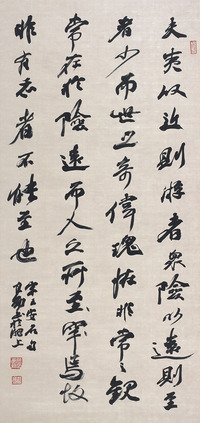 夫夷以近則游者衆險以遠則至
者少而世之奇偉瑰怪非常之觀
常在於險遠而人之所至罕焉故
非有志者不能至也
宋王安石句
書於滬上